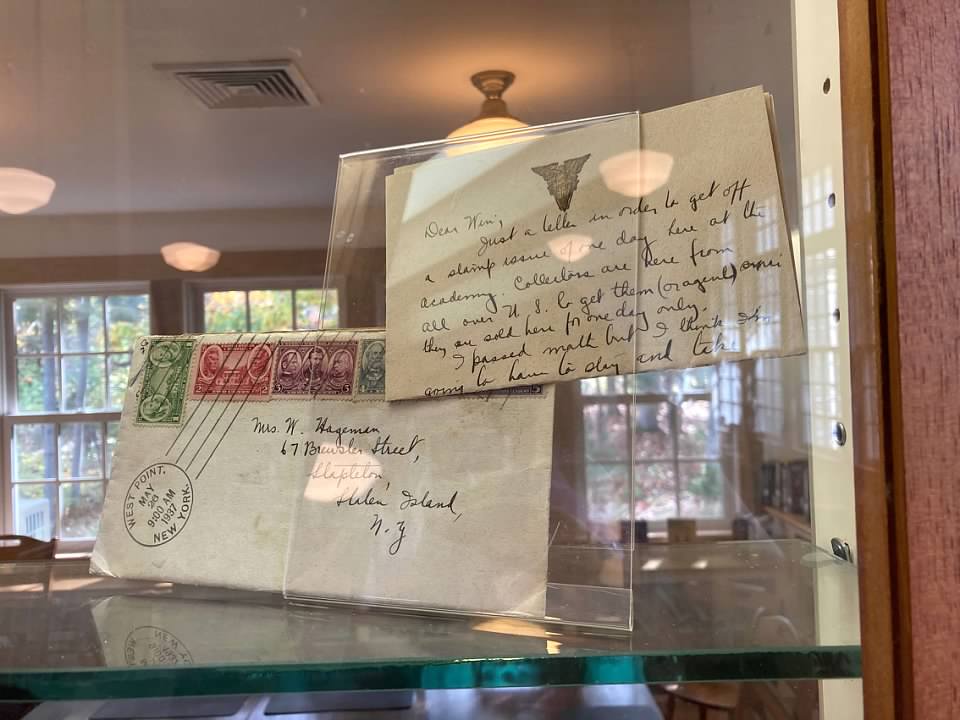 Dear Win;
Just a letter in order to get off
a stamp issue of one day here at the
academy. Collectors are here from
all over U.S. to get them (or agent)
they are sold here for one day only.
I passed math but I think I'm
going to have to stay and take
Mrs. W. Hageman
67 Brewster Street,
Stapleton,
Staten Island,
N.Y
WEST POINT,
MAY
26
9:00 AM
1937
NEW YORK.